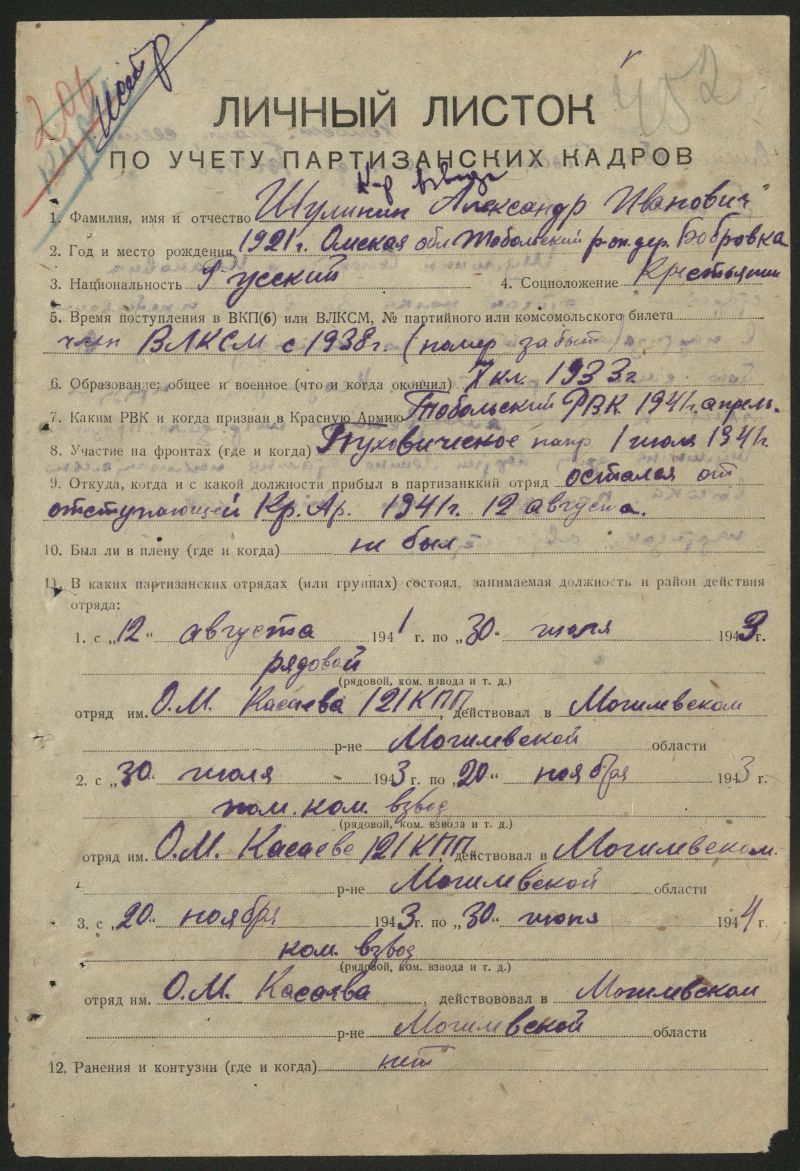 452
206
ЛИЧНЫЙ ЛИСТОК
ПО УЧЕТУ ПАРТИЗАНСКИХ КАДРОВ
К-р взвода
1. Фамилия, имя и отчество Шулинин Александр Иванович
2. Год и место рождения 1921 г. Омская обл Тобольский р-он дер. Бобровка
3. Национальность Русский 4. Соцположение Крестьянин
5. Время поступления в ВКП(б) или ВЛКСМ, № партийного или комсомольского билета
член ВЛКСМ с 1938 г. (номер забыт)
6. Образование: общее и военное (что и когда окончил) 7 кл. 1933 г
7. Каким РВК и когда призван в Красную Армию Тобольский РВК 1941 г. апрель.
8. Участие на фронтах (где и когда) напр 1 июля 1941 г.
9. Откуда, когда и с какой должности прибыл в партизанккий отряд остался от
отступающей Кр. Ар. 1941 г. 12 августа.
10. Был ли в плену (где и когда) не был
11. В каких партизанских отрядах (или группах) состоял, занимаемая должность и район действия
отряда:
1. с „12“ августа 1941 г. по „30“ июля 1943 г.
рядовой
(рядовой, ком. взвода и т. д.)
отряд им. О.М. Касаева 121 КПП, действовал в Могилевском
р-не Могилевской области
2. с „30“ июля 1943 г. по „20“ ноября 1943 г.
пом. ком. взвод
(рядовой, ком. взвода и т. д.)
отряд им. О.М. Касаева 121 КПП, действовал в Могилевском.
р-не Могилевской области
3. с „20“ ноября 1943 г. по „30“ июня 1944 г.
ком. взвод
(рядовой, ком. взвода и т. д.)
отряд им. О.М. Касаева, действововал в Могилевском
р-не Могилевской области
12. Ранения и контузии (где и когда) нет